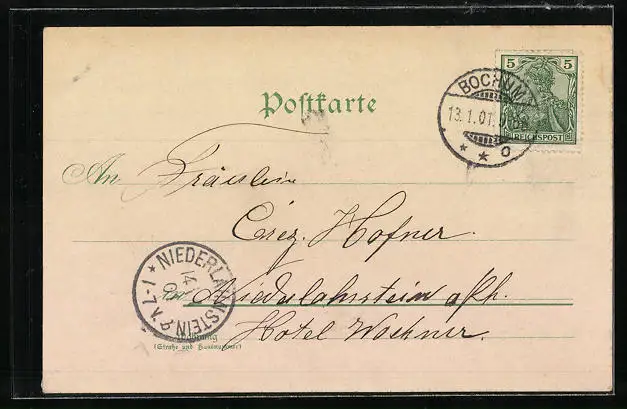 Postkarte
5 5
REICHSPOST
BOCHUM
13.1.01.
* * o
An Fräulein
Hofner.
* NIEDERLAHNSTEIN *
14
7-1 N
in Niederlahnstein a/Rh.
Hotel
Wohnung
(Straße und Hausnummer)